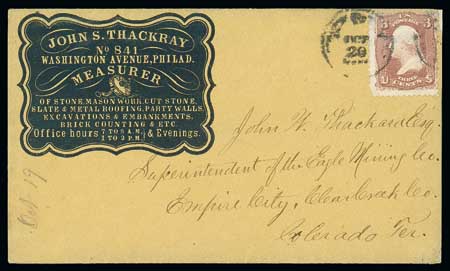 JOHN S. THACKRAY
No 841
WASHINGTON AVENUE, PHILAD.
MEASURER
OF STONE, MASON WORK, CUT STONE,
SLATE & METAL ROOFING, PARTY WALLS,
EXCAVATIONS & EMBANKMENTS,
BRICK COUNTING & ETC.
Office hours 7 TO 8 A.M. 1 TO 2 P.M. & Evenings.
OCT
20
3 U.S. 3
POSTAGE
THREE
CENTS
John W. Thackara Esq.
Superintendent of the Eagle Mining Co.
Empire City, Clear Creek Co.
Colorado Ter.
Oct 19